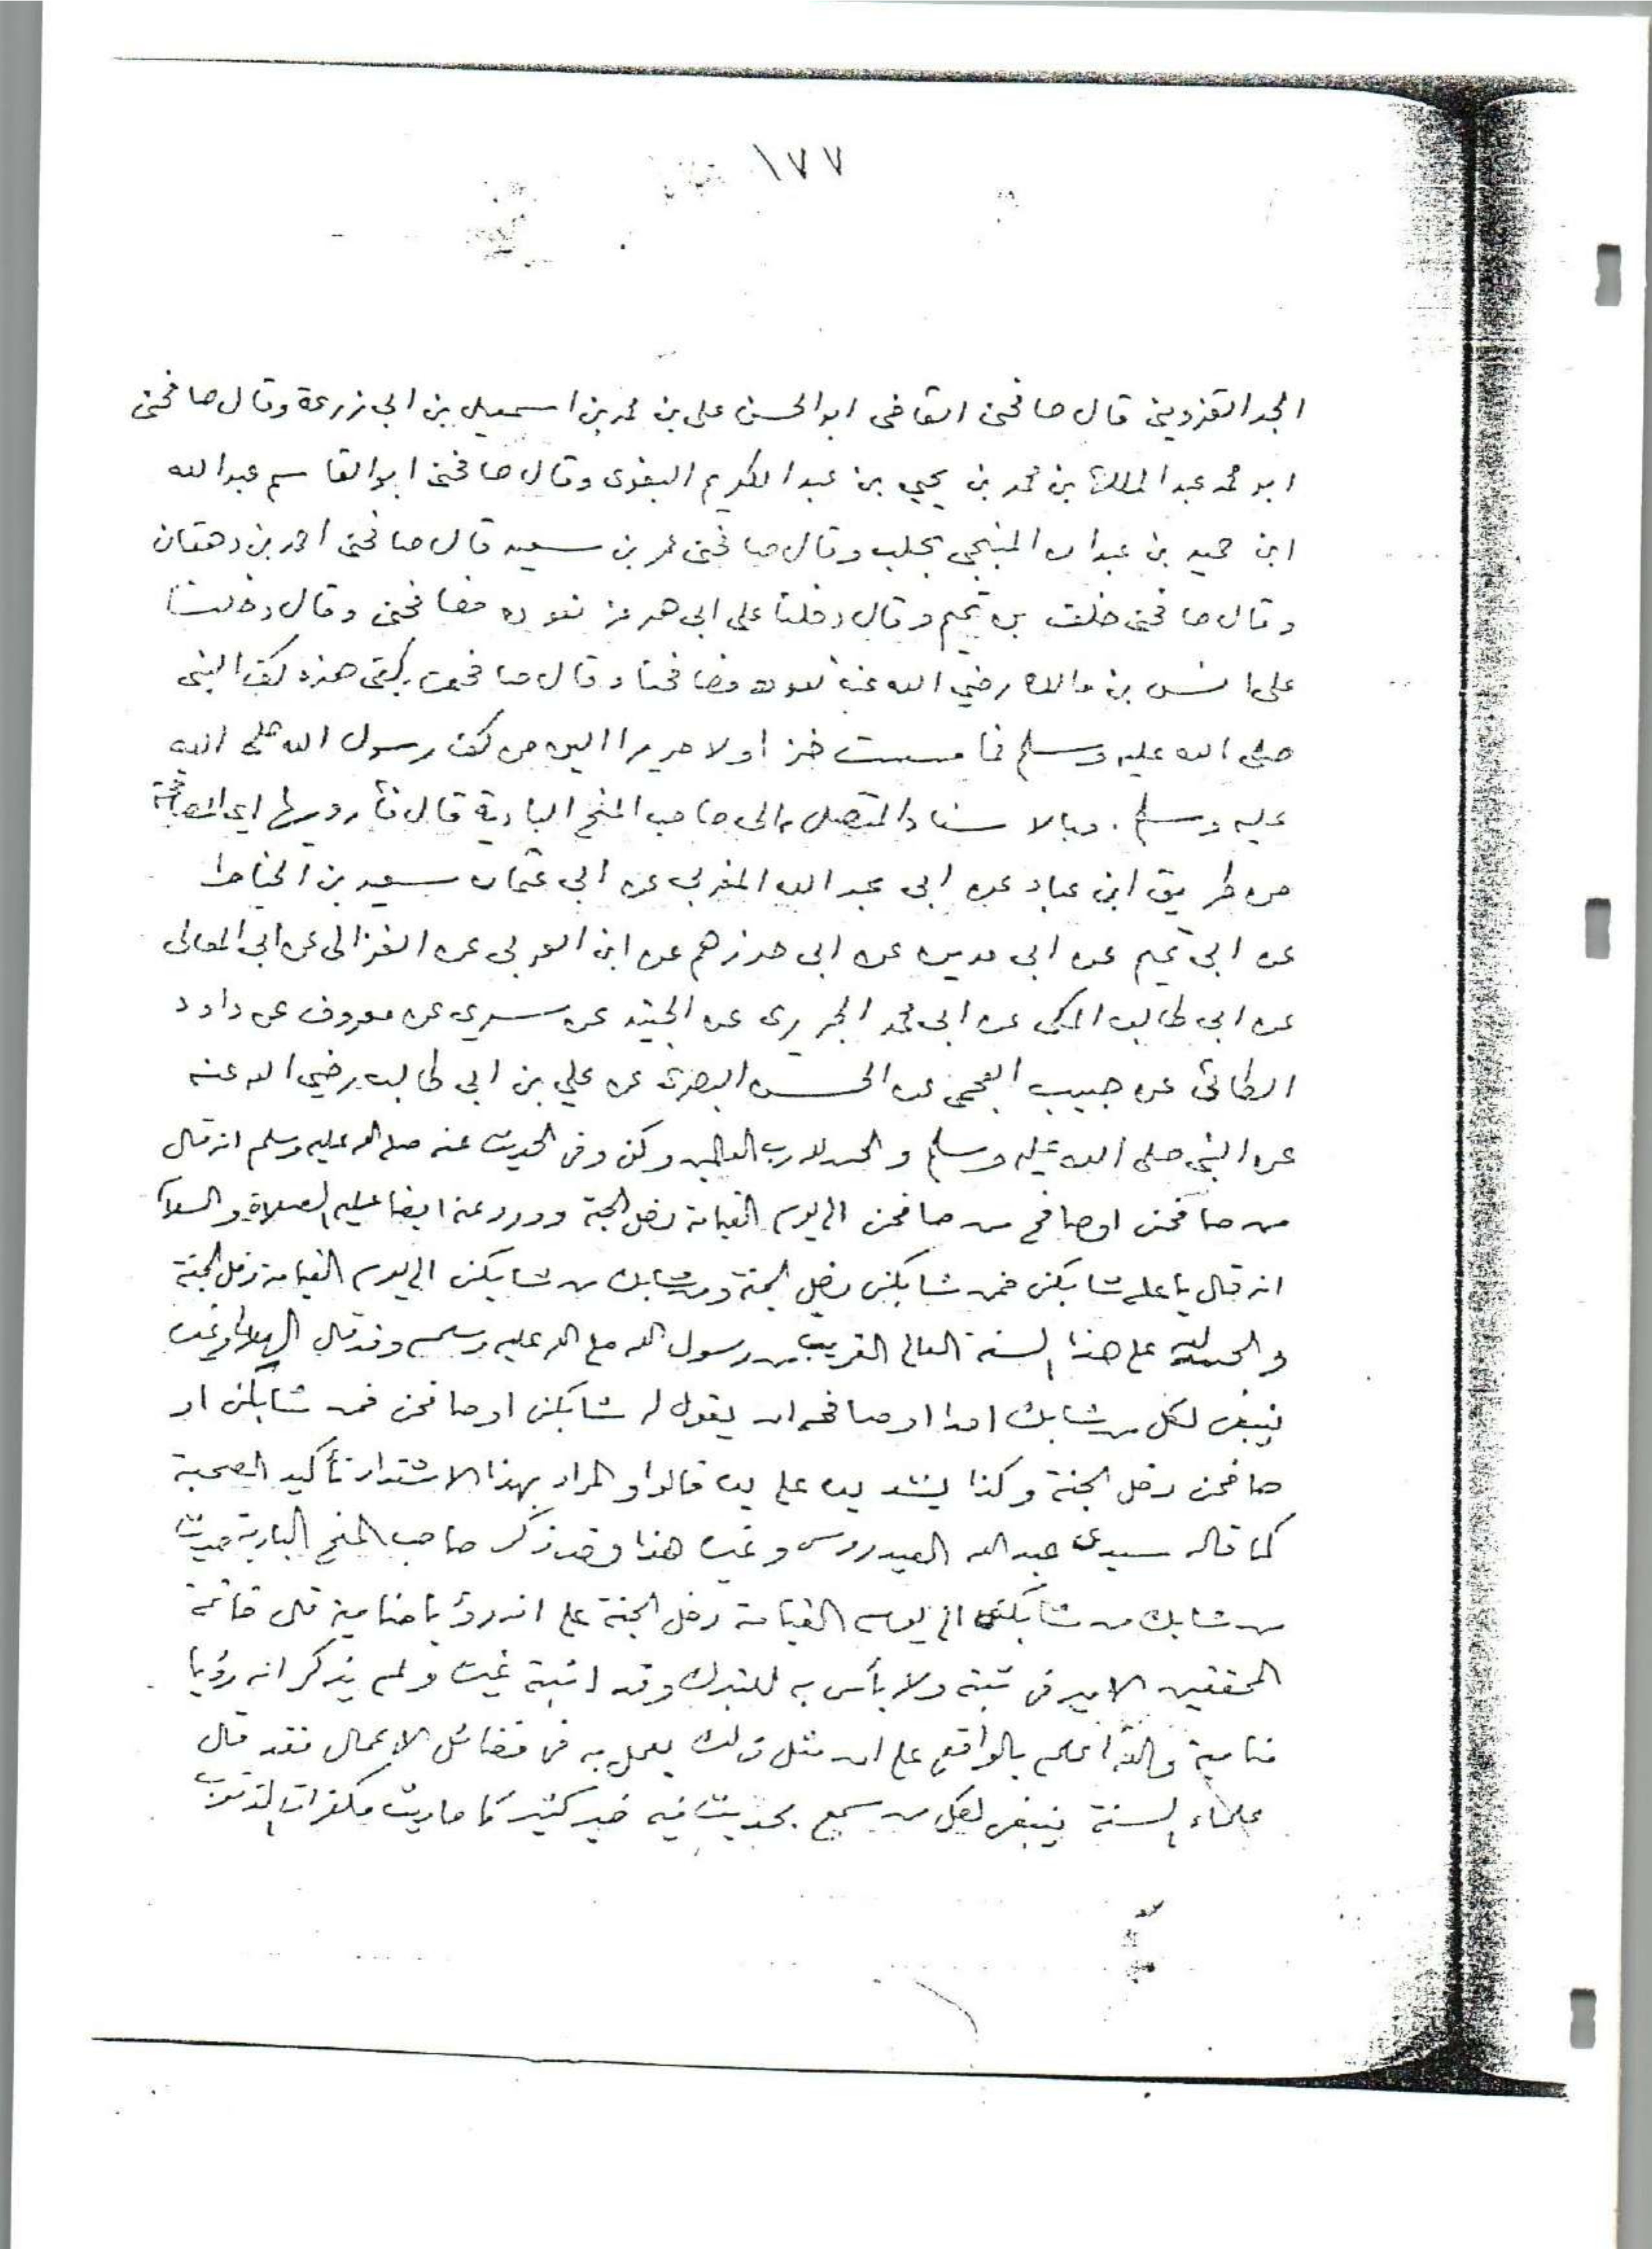 ١٧٧
المجد القزويني قال صافحنى القاضى ابوالحسن على بن محمد بن اسمعيل بن ابي زرعة وقال صافحنى
ابو محمد عبد الملك بن محمد بن يحيى بن عبد الكريم البغوى وقال صافحنى ابوالقاسم عبدالله
ابن حميد بن عبدان المنبجي بحلب وقال صافحنى عمر بن سعيد قال صافحنى احمد بن دهقان
وقال صافحنى خلف بن تميم وقال دخلنا على ابى هرمز نعوده فصافحنى وقال دخلت
على انس بن مالك رضي الله عنه نعوده فصافحنا وقال صافحت بكفى هذه كف النبى
صلى الله عليه وسلم فما مسست خزا ولا حريرا الين من كف رسول الله صلى الله
عليه وسلم . وبالاسناد المتصل الى صاحب المنح البادية قال فأرويها اى المصافحة
من طريق ابن عباد عن ابى عبد الله المغربي عن ابي عثمان سعيد بن الخياط
عن ابي تميم عن ابى مدين عن ابى حرزهم عن ابن العربى عن الغزالى عن ابى المعالى
عن ابى طالب المكى عن ابى محمد الجريرى عن الجنيد عن سري عن معروف عن داود
الطائى عن حبيب العجمى عن الحسن البصرى عن علي بن ابى طالب رضي الله عنه
عن النبى صلى الله عليه وسلم والحمد لله رب العالمين وكن وفى الحديث عنه صلى الله عليه وسلم انه قال
من صافحنى او صافح من صافحنى الى يوم القيامة دخل الجنة وورد عنه ايضا عليه الصلاة والسلام
انه قال يا على شابكنى فمن شابكنى دخل الجنة ومن شابك من شابكنى الى يوم القيامة دخل الجنة
والحمد لله على هذا السند العالى القريب من رسول الله صلى الله عليه وسلم وقد قال
فينبغى لكل من شابك احدا او صافحه ان يقول له شابكنى او صافحنى فمن شابكنى او
صافحنى دخل الجنة وكذا يشد يده على يده قالوا والمراد بهذا الاشتداد تأكيد الصحبة
كما قاله سيدى عبد الله العيدروس وغيره هذا وقد ذكر صاحب المنح البادية حديث
من شابك من شابكنى الى يوم القيامة دخل الجنة على انه رؤيا منامية قال خاتمة
المحققين الامير فى ثبته ولا بأس به للتبرك وقد اثبته غيره ولم يذكر انه رؤيا
منامية والله اعلم بالواقع على ان مثل ذلك يعمل به فى فضائل الاعمال فقد قال
علماء السنة ينبغى لكل من سمع بحديث فيه خير كثير كأحاديث مكفرات الذنوب